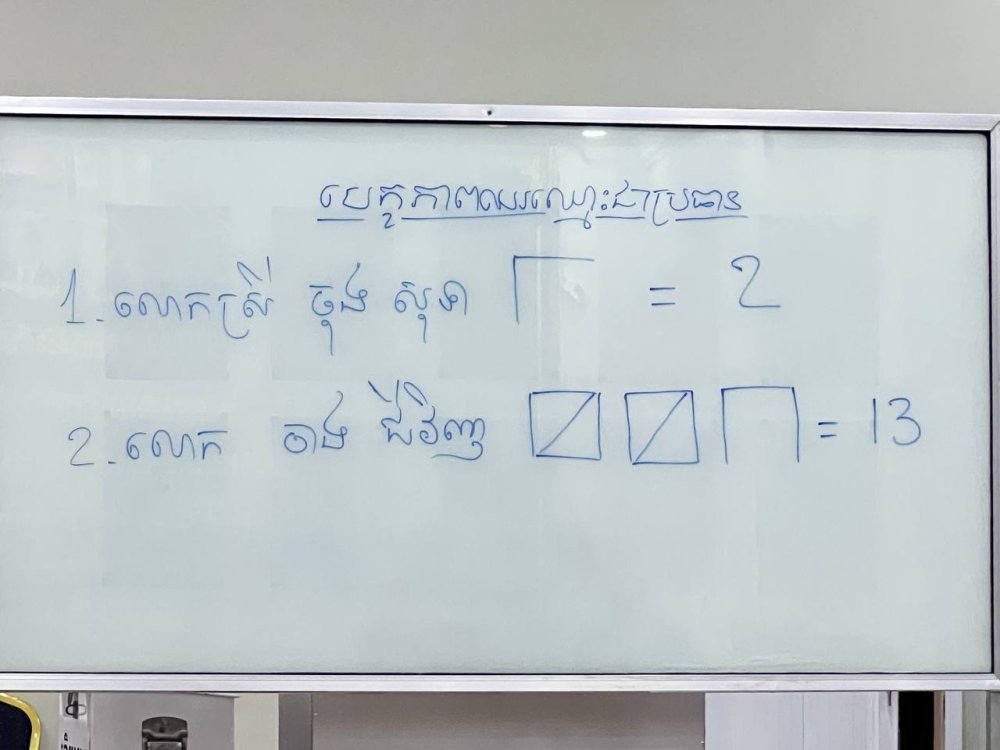 បេក្ខភាពឈរឈ្មោះជាប្រធាន
1. លោកស្រី ចុង សុទា = 2
2. លោក ចាង ជីវិញ = 13